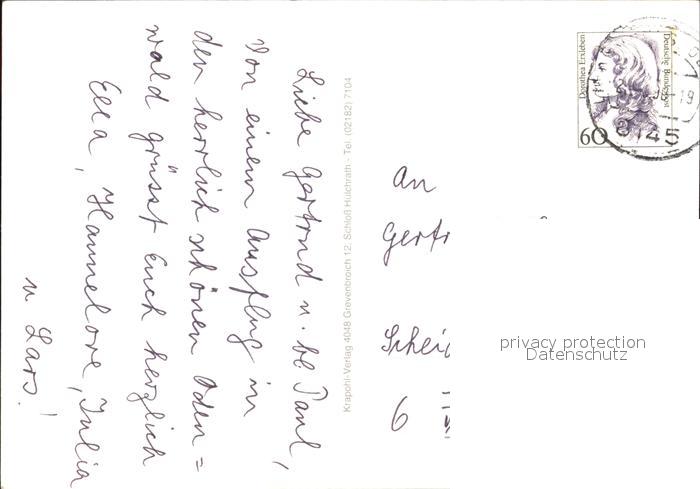 Liebe Gertrud u. lb. Paul,
Von einem Ausflug in
den herrlich schönen Oden=
wald grüsst Euch herzlich
Ella, Hannelore, Julia
u Lars!
Krapohl-Verlag 4048 Grevenbroich 12, Schloß Hülchrath - Tel. (02182) 7104
An
Gertr
Scheid
6
Dorothea Erxleben
Deutsche Bundespost
60
privacy protection
Datenschutz